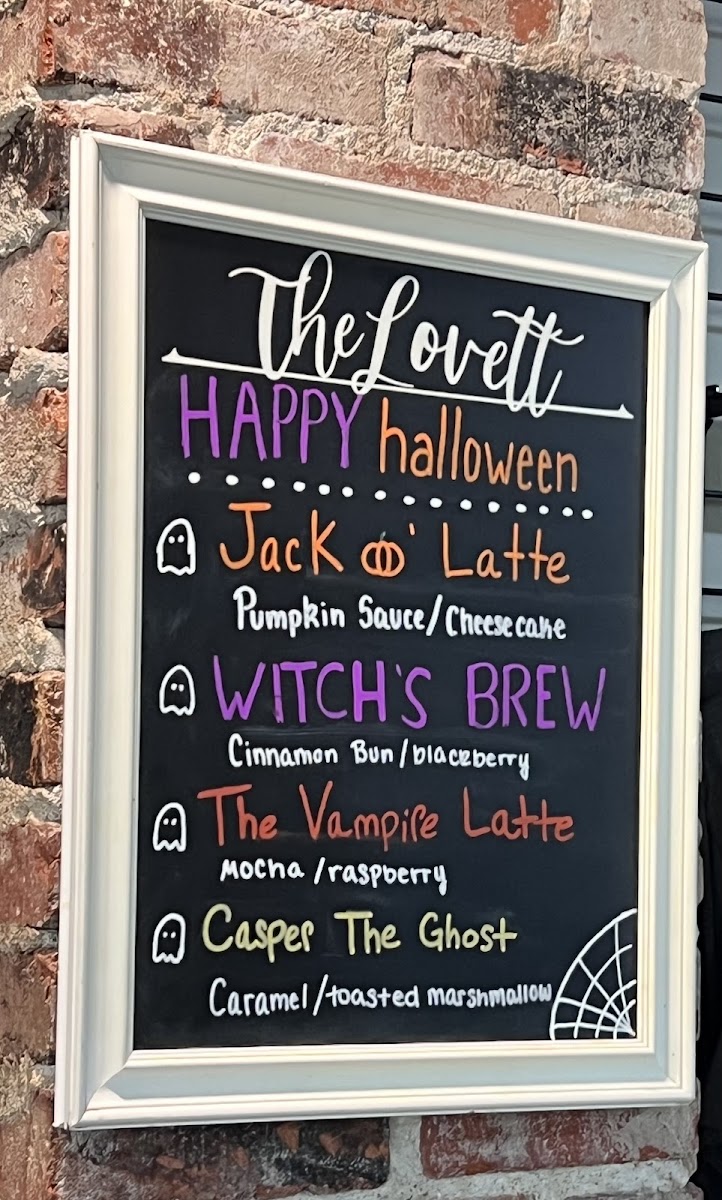 The Lovett
HAPPY halloween
Jack O' Latte
Pumpkin Sauce/Cheesecake
WITCH'S BREW
Cinnamon Bun/blackberry
The Vampire Latte
Mocha/raspberry
Casper The Ghost
Caramel/toasted marshmallow